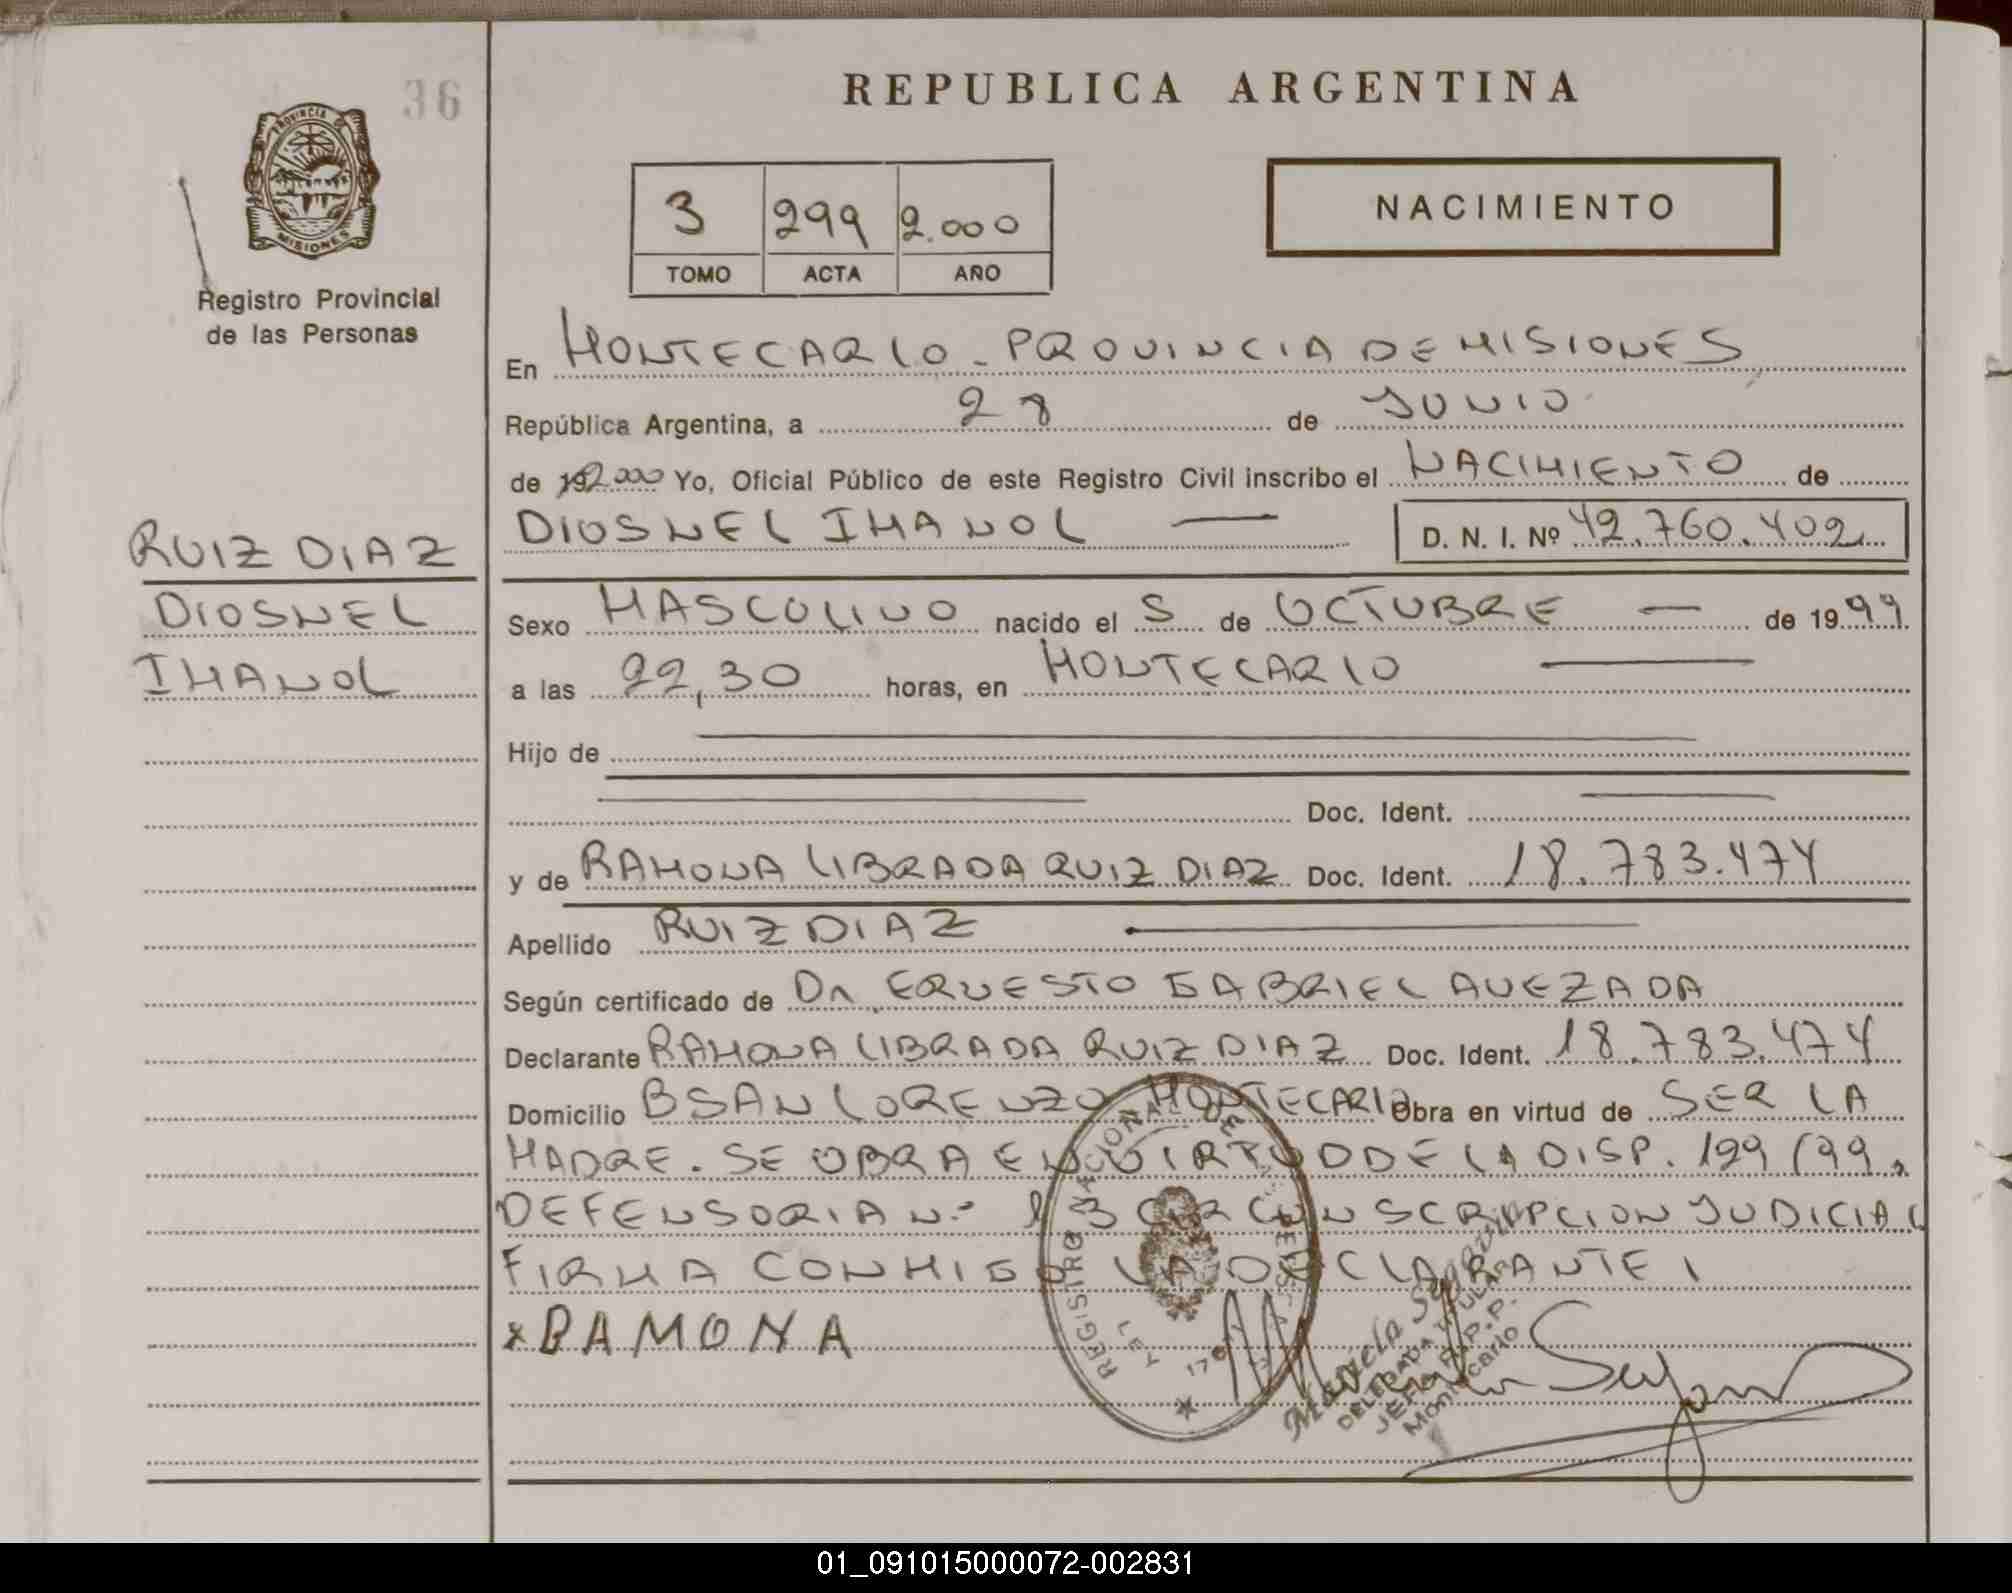 36
REPUBLICA ARGENTINA
PROVINCIA DE MISIONES
Registro Provincial
de las Personas
3 299 2.000
TOMO ACTA AÑO
NACIMIENTO
En MONTECARLO - PROVINCIA DE MISIONES
República Argentina, a 28 de JUNIO
de 192.000 Yo, Oficial Público de este Registro Civil inscribo el NACIMIENTO de
DIOSNEL IMANOL — D. N. I. Nº 42.760.402
RUIZ DIAZ
DIOSNEL
IMANOL
Sexo MASCULINO nacido el 5 de OCTUBRE — de 1999
a las 22,30 horas, en MONTECARLO —
Hijo de —
— Doc. Ident. —
y de RAMONA LIBRADA RUIZ DIAZ Doc. Ident. 18.783.474
Apellido RUIZ DIAZ —
Según certificado de Dr ERNESTO GABRIEL AVEZADA
Declarante RAMONA LIBRADA RUIZ DIAZ Doc. Ident. 18.783.474
Domicilio B SAN LORENZO MONTECARLO Obra en virtud de SER LA
MADRE. SE OBRA EN VIRTUD DE LA DISP. 199/99,
DEFENSORIA Nº 1 3 CIRCUNSCRIPCION JUDICIAL
FIRMA CONMIGO LA DECLARANTE
x RAMONA
REGISTRO NACIONAL DE LAS PERSONAS
LEY 17671
DELEGADA TITULAR
JEFE R.P.P.
Montecarlo
01_091015000072-002831